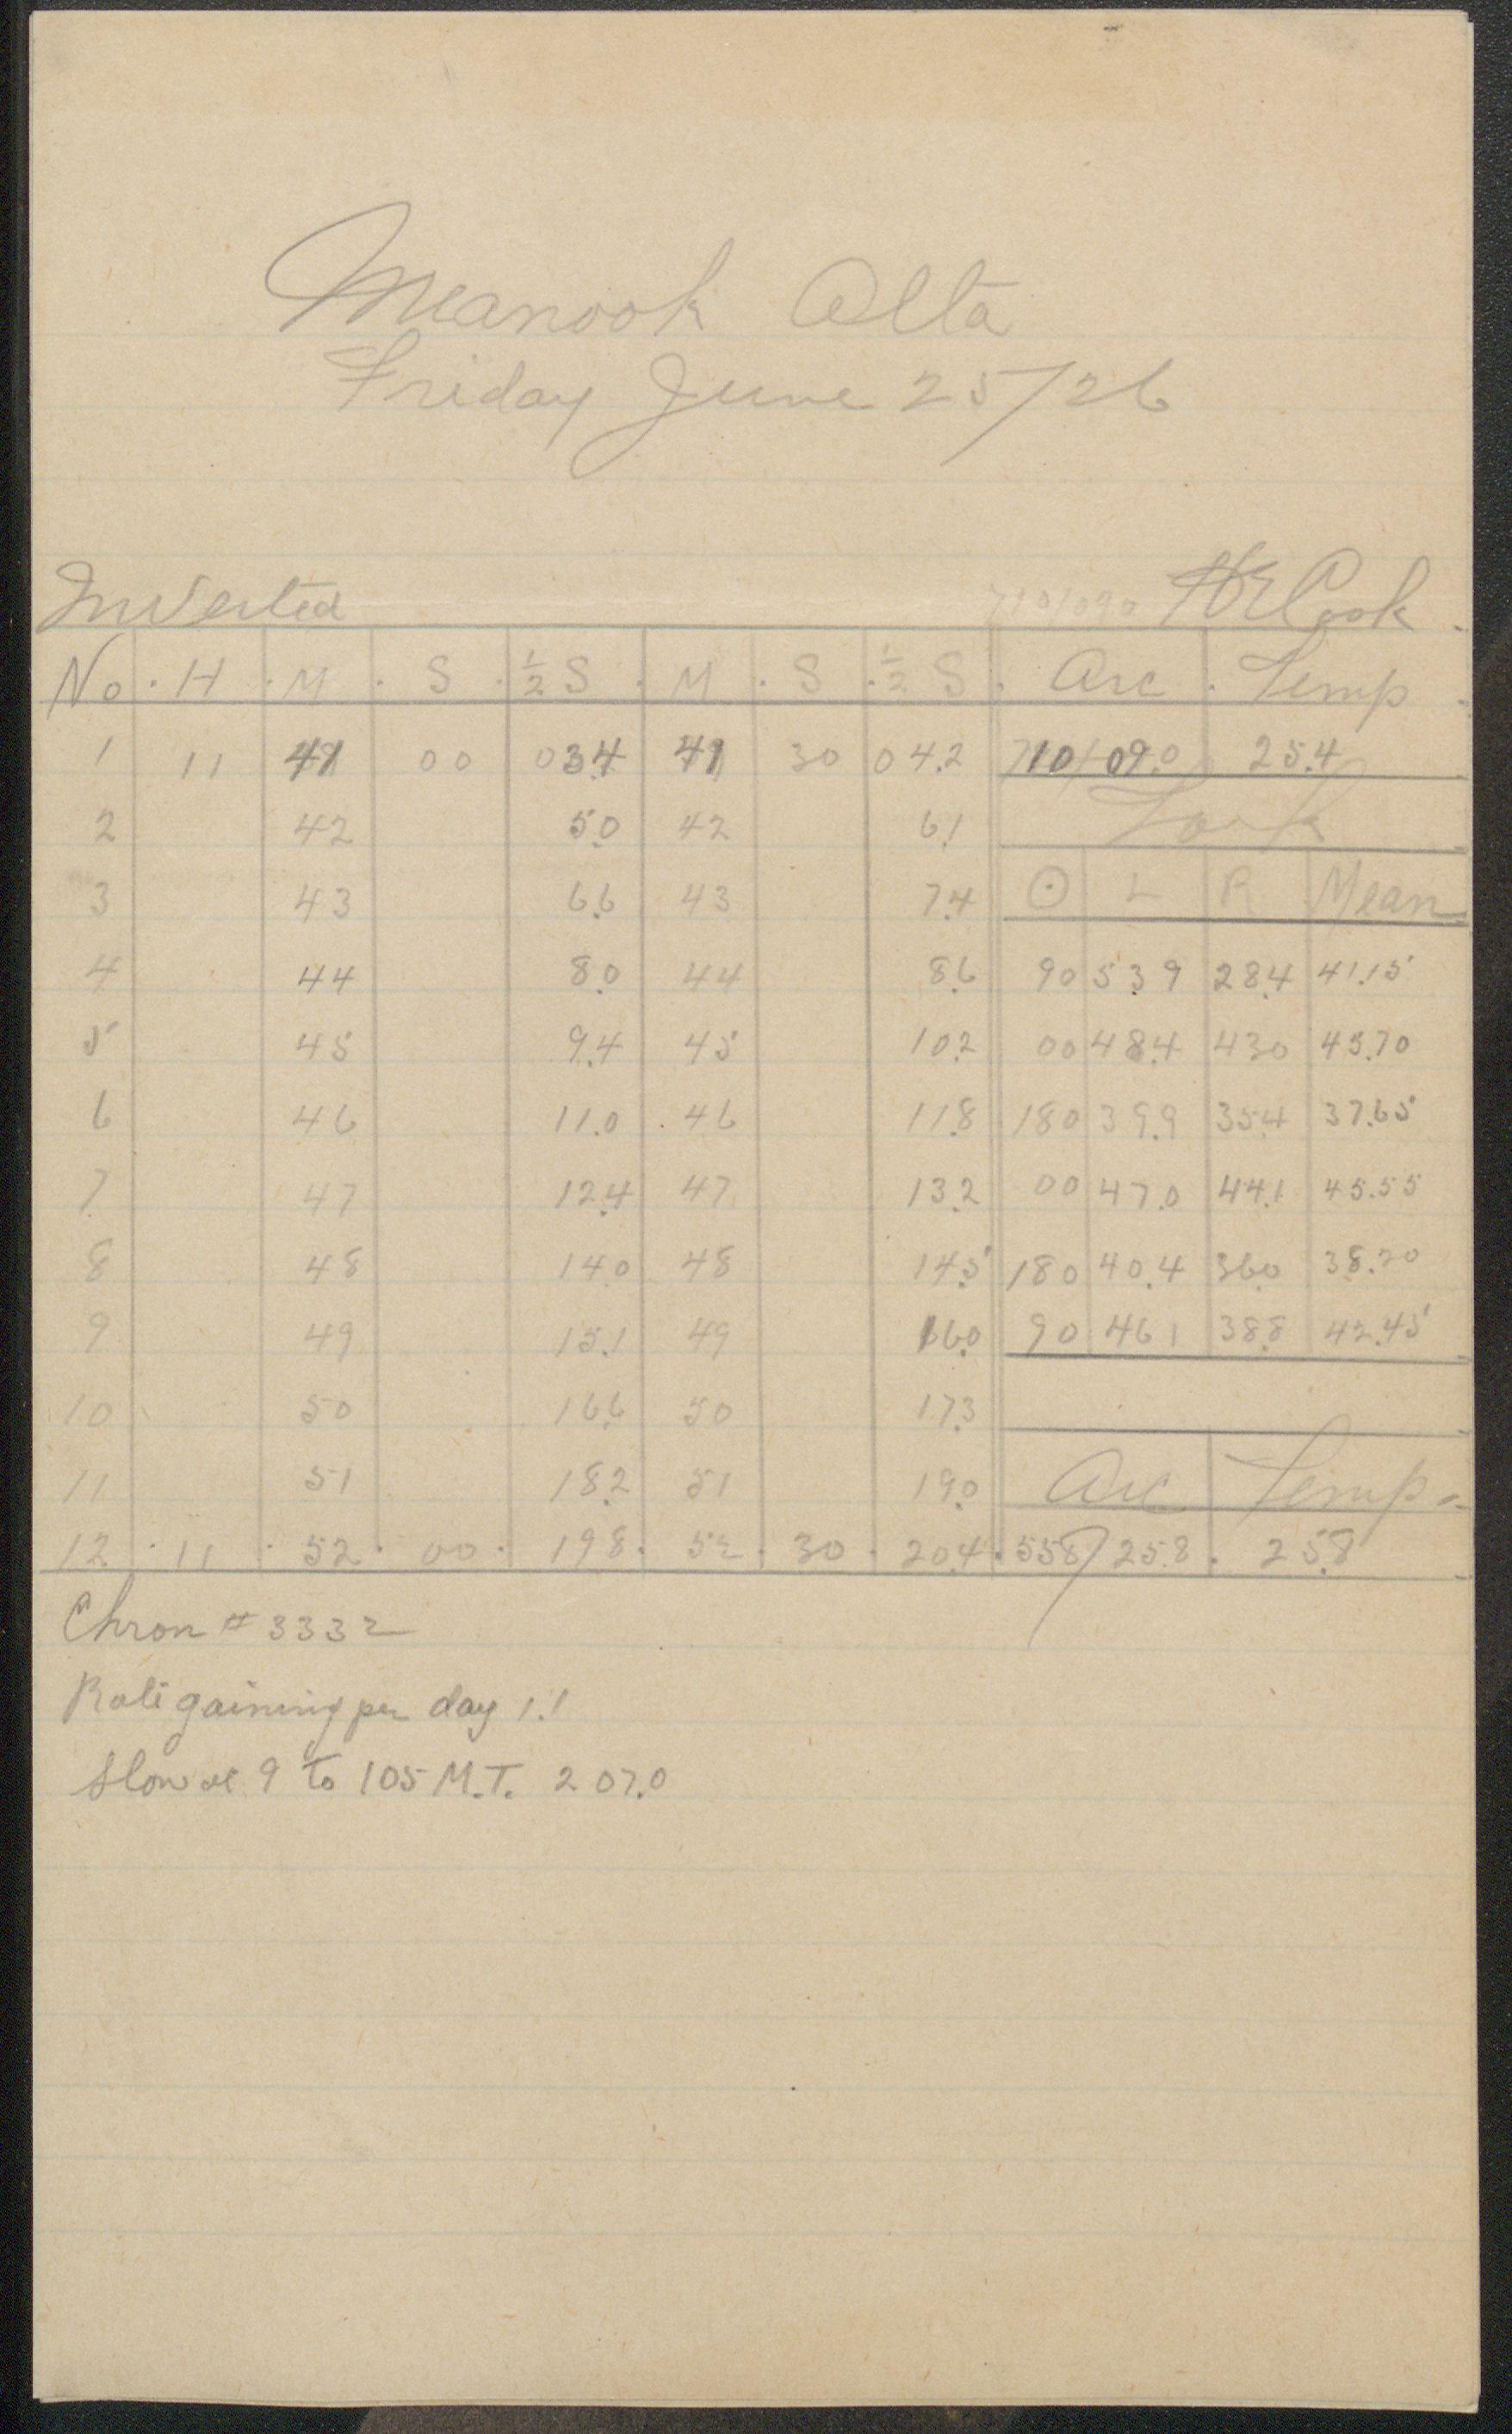 Meanook Alta
Friday June 25/26
Inverted 710/090 HECook
No. H M S ½S M S ½S Arc Temp
1 11 41 00 03.4 41 30 04.2 710/09.0 25.4
2 42 5.0 42 6.1 Tork
3 43 6.6 43 7.4 ⊙ L R Mean
4 44 8.0 44 8.6 90 53.9 28.4 41.15
5 45 9.4 45 10.2 00 48.4 430 45.70
6 46 11.0 46 11.8 180 39.9 35.4 37.65
7 47 12.4 47 13.2 00 47.0 44.1 45.55
8 48 14.0 48 14.5 180 40.4 36.0 38.20
9 49 15.1 49 16.0 90 461 38.8 42.45
10 50 16.6 50 17.3
11 51 18.2 51 19.0 Arc Temp.
12 11 52 00 19.8 52 30 20.4 558/25.8 25.8
Chron # 3332
Rate gaining per day 1.1
Slow at 9 to 105 M.T. 2 07.0